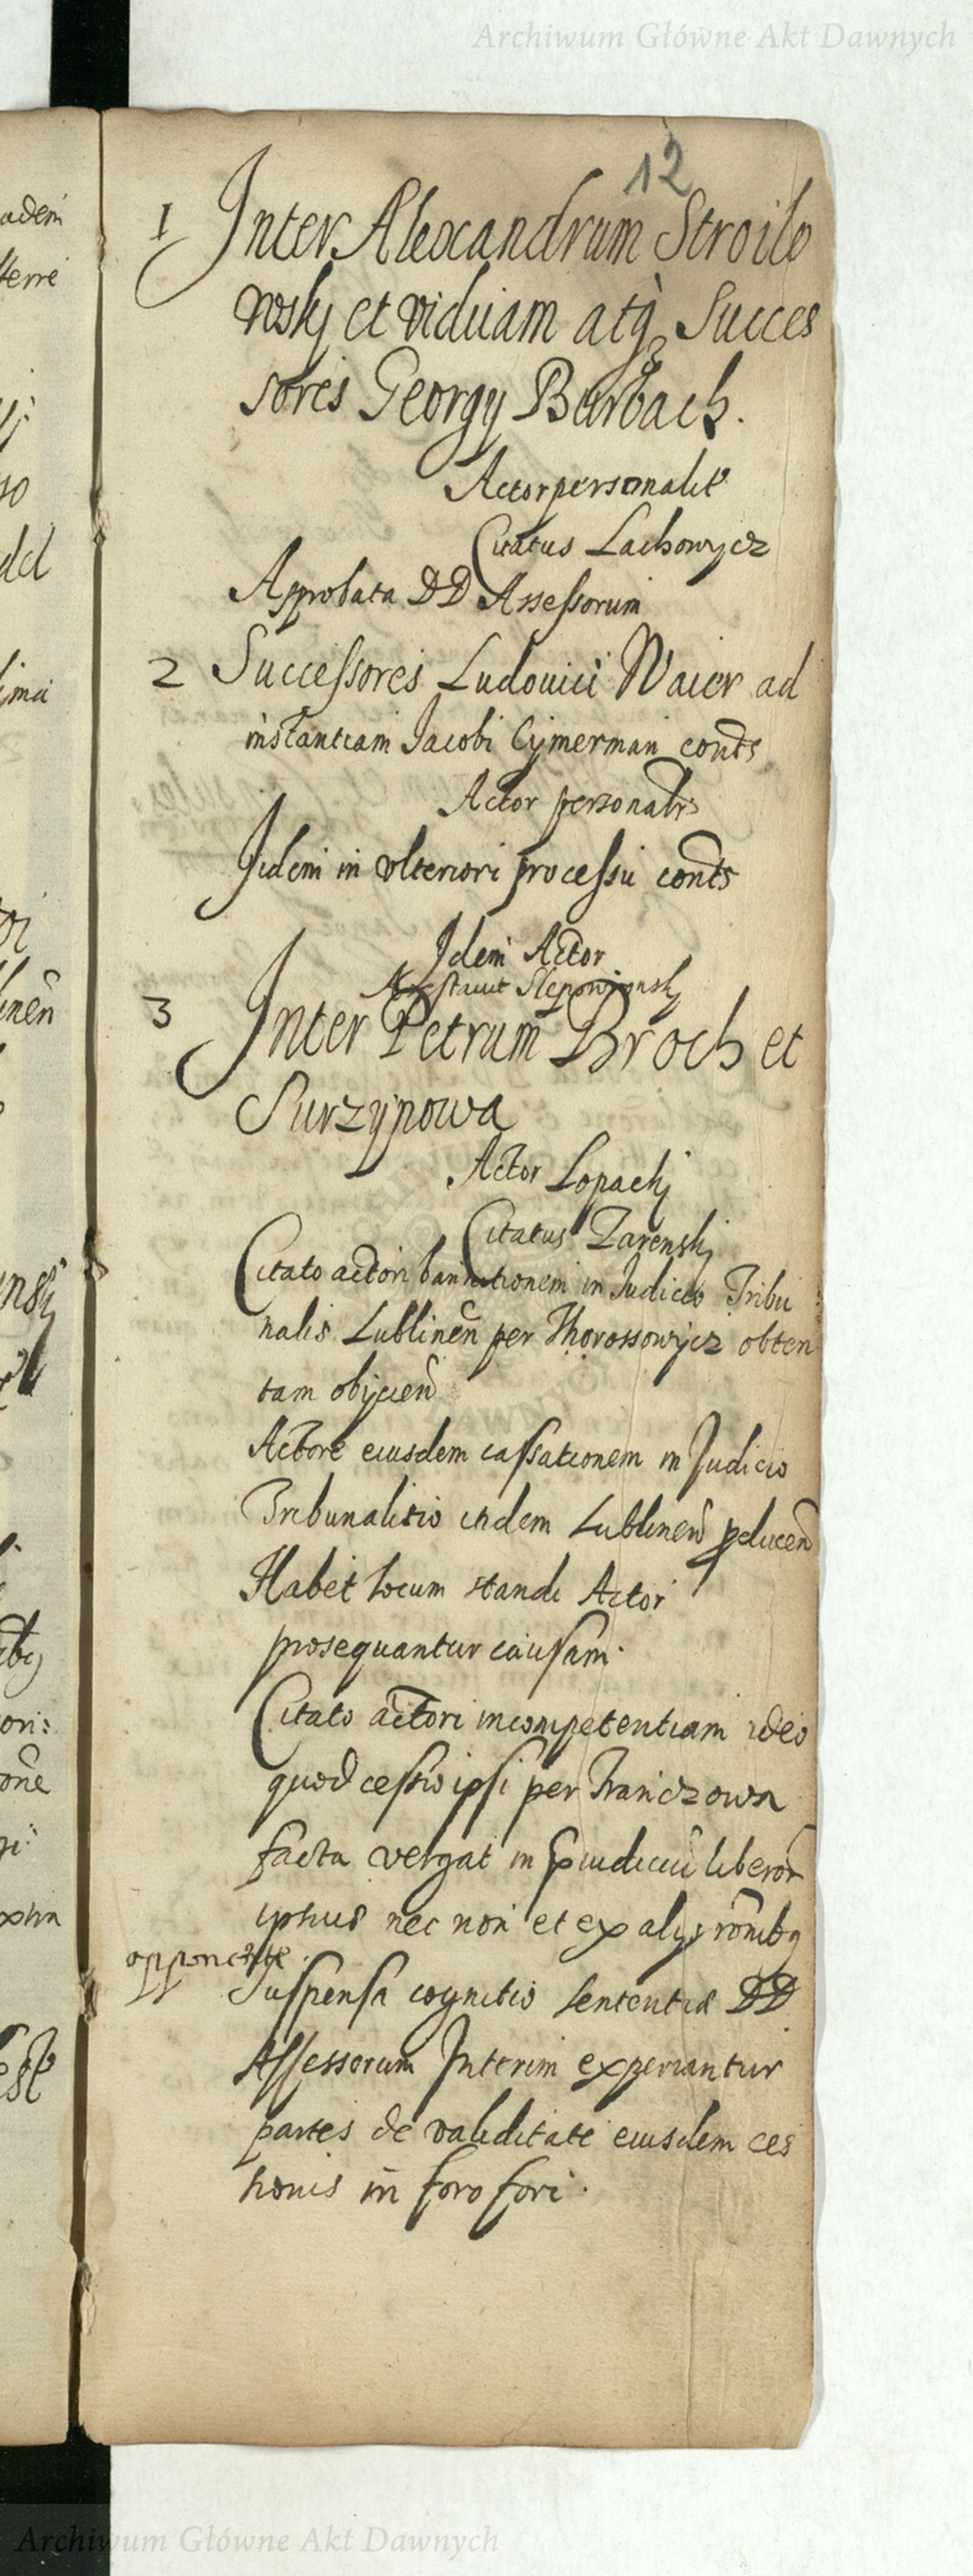 Archiwum Główne Akt Dawnych
12
1 Inter Alexandrum Stroilo
wskj et viduam atq3 Succes
sores Georgy Burbach.
Actor personalit
Citatus Lachowycz
Approbata DD Assessorum
2 Successores Ludouici Waier ad
instantiam Jacobi Cymerman conts
Actor personalis
Iidem in vlteriori processu conts
Idem Actor
Arestauit Slepowronskj
3 Inter Petrum Broch et
Surzynowa
Actor Lopackj
Citatus Zarenskj
Citato actori bannitionem in Judicio Tribu
nalis Lublinen per Thorossowycz obten
tam obijcien
Actore eiusdem cassationem in Judicio
Tribunalitio itidem Lublinen pducen
Habet locum standi Actor
prosequantur causam.
Citato actori incompetentiam ideo
quod cessio ipsi per Franczowa
facta vergat in piudiciu liberor
ipsius nec non et ex alijs rōnibq
opponente.
Suspensa cognitio sententiæ DD
Assessorum Interim experiantur
partes de validitate eiusdem ces
sionis in foro fori.
adem
ferre
so
dd
lima
oi
linen
nskj
ori:
one
Archiwum Główne Akt Dawnych